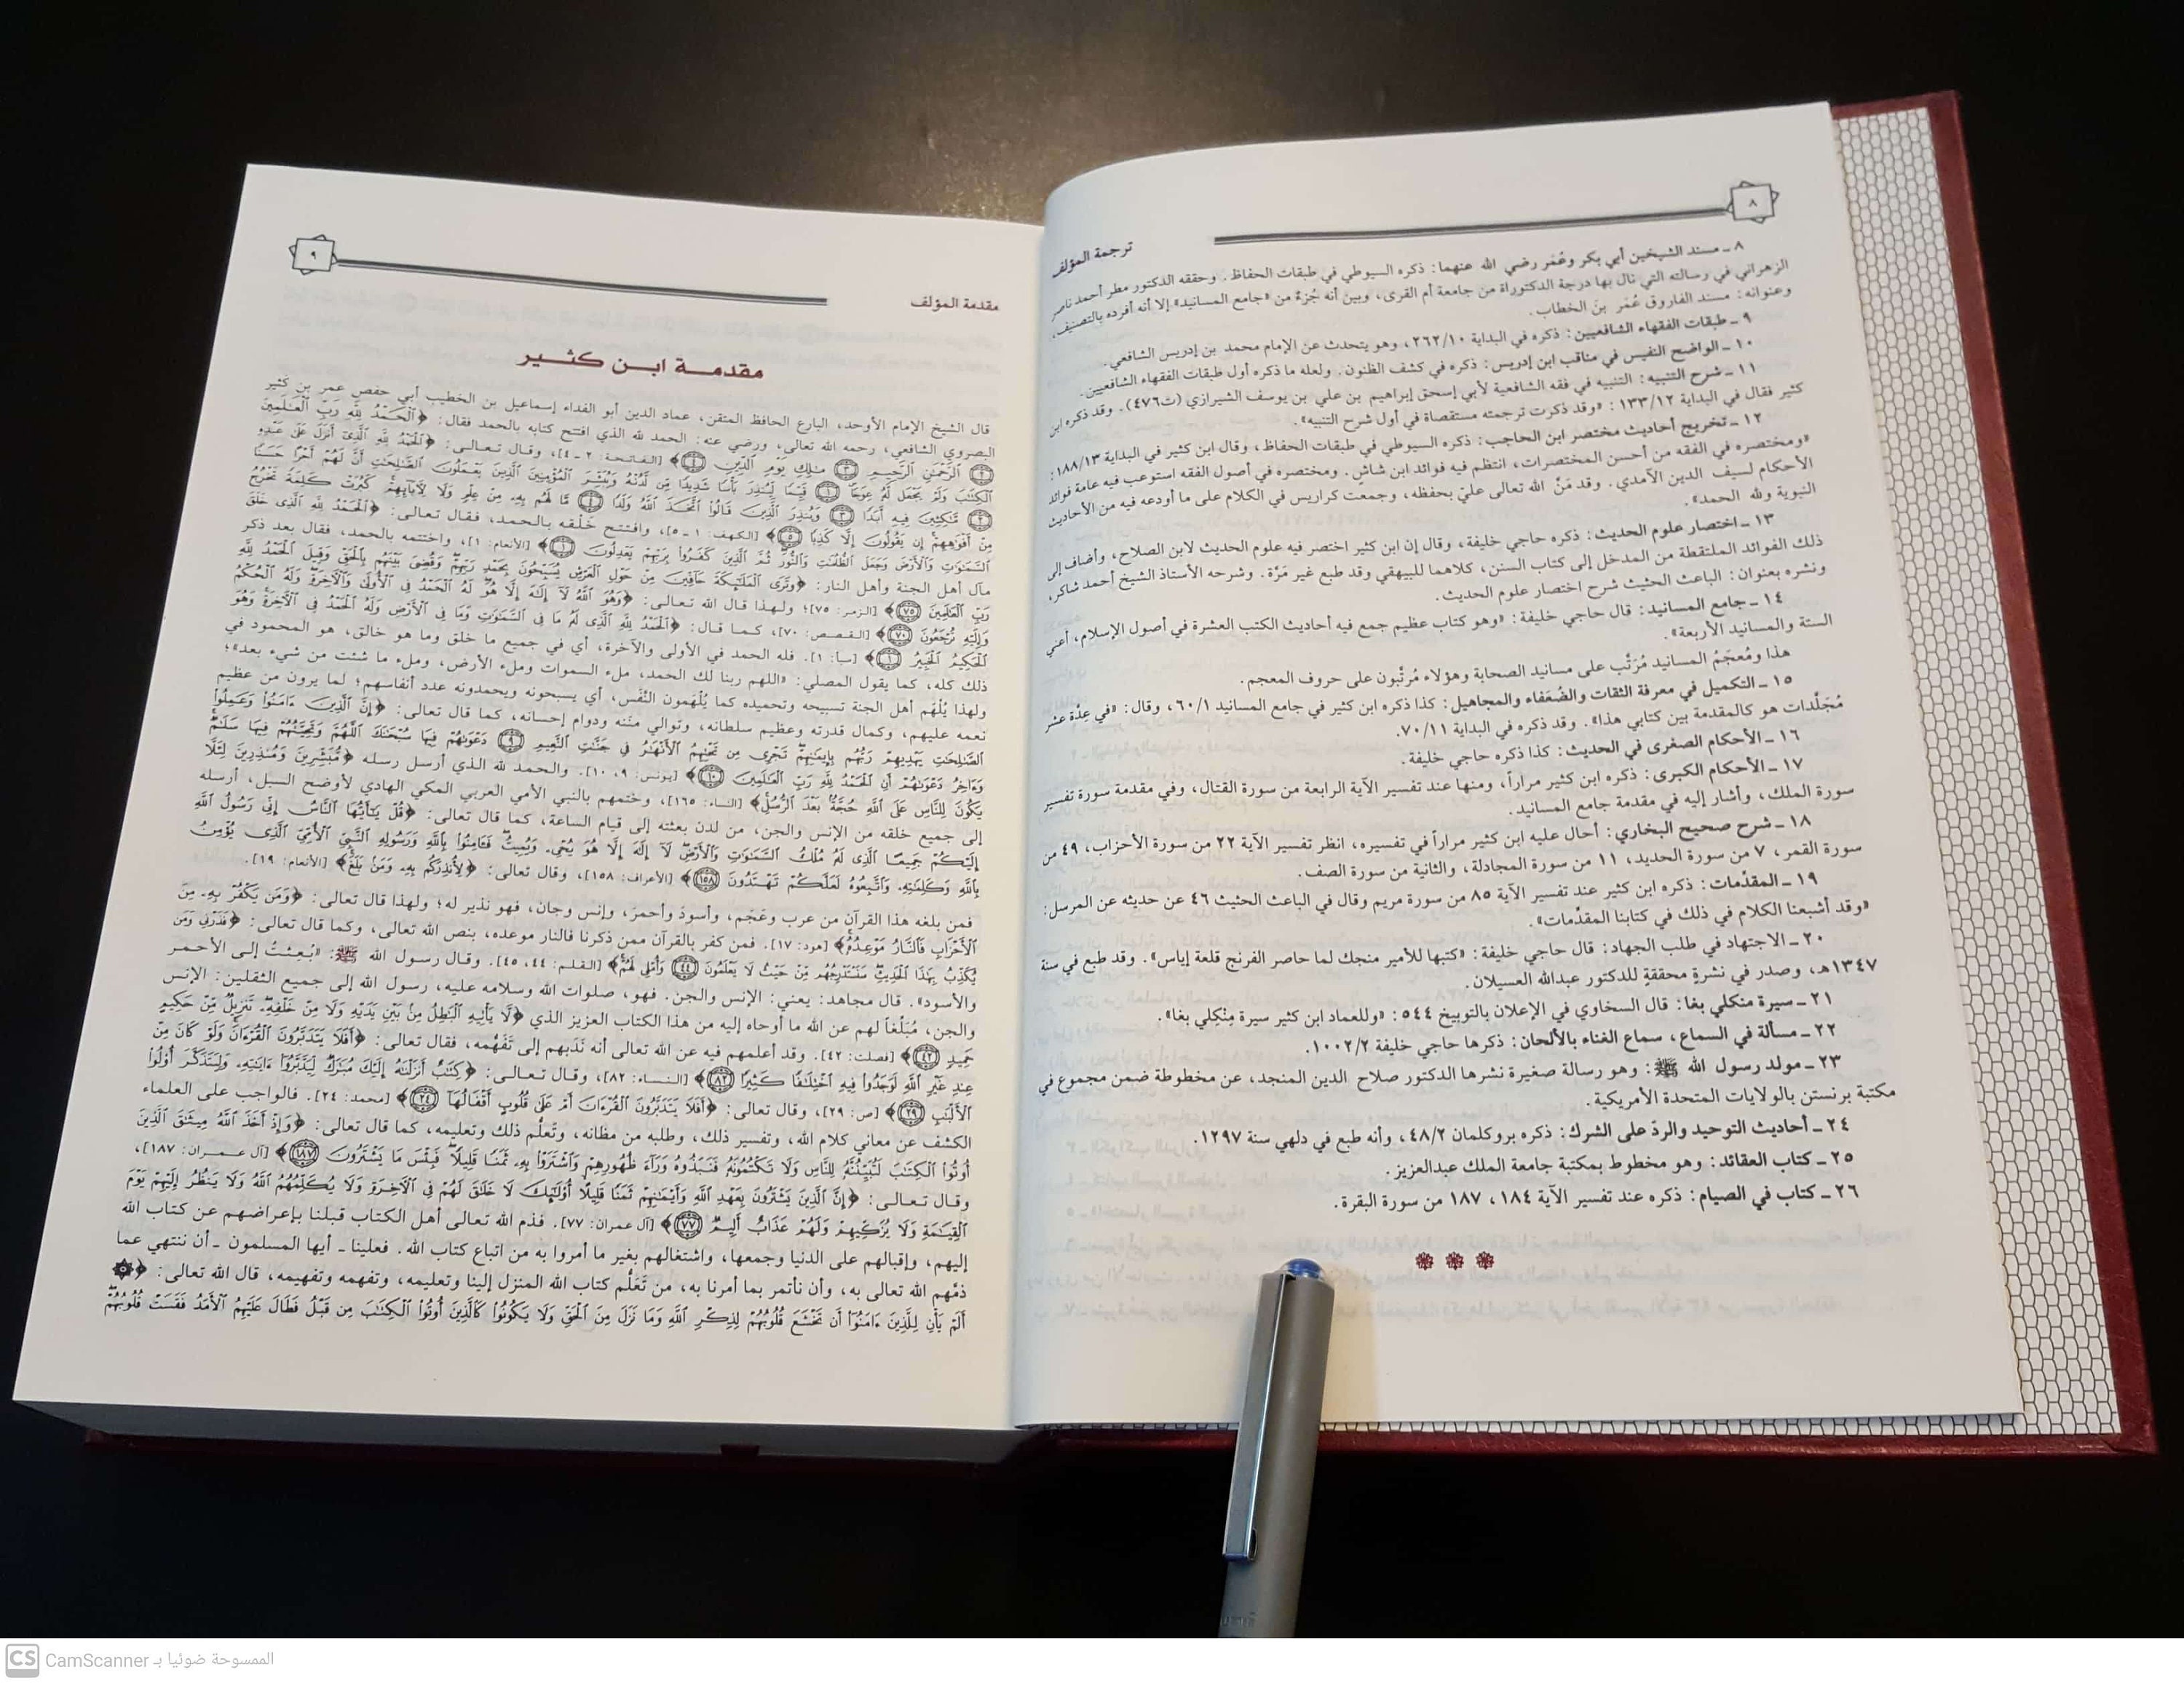 ٨
ترجمة المؤلف
٨ ـ مسند الشيخين أبي بكر وعُمَر رضي الله عنهما: ذكره السيوطي في طبقات الحفاظ. وحققه الدكتور مطر أحمد ناصر
الزهراني في رسالته التي نال بها درجة الدكتوراة من جامعة أم القرى، وبين أنه جُزءٌ من «جامع المسانيد» إلا أنه أفرده بالتصنيف،
وعنوانه: مسند الفاروق عُمَر بنَ الخطاب.
٩ ـ طبقات الفقهاء الشافعيين: ذكره في البداية ٢٦٢/١٠، وهو يتحدث عن الإمام محمد بن إدريس الشافعي.
١٠ ـ الواضح النفيس في مناقب ابن إدريس: ذكره في كشف الظنون. ولعله ما ذكره أول طبقات الفقهاء الشافعيين.
١١ ـ شرح التنبيه: التنبيه في فقه الشافعية لأبي إسحق إبراهيم بن علي بن يوسف الشيرازي (ت٤٧٦). وقد ذكره ابن
كثير فقال في البداية ١٣٣/١٢: «وقد ذكرت ترجمته مستقصاة في أول شرح التنبيه».
١٢ ـ تخريج أحاديث مختصر ابن الحاجب: ذكره السيوطي في طبقات الحفاظ، وقال ابن كثير في البداية ١٨٨/١٣:
«ومختصره في الفقه من أحسن المختصرات، انتظم فيه فوائد ابن شاش. ومختصره في أصول الفقه استوعب فيه عامة فوائد
الأحكام لسيف الدين الآمدي. وقد مَنّ الله تعالى عليّ بحفظه، وجمعت كراريس في الكلام على ما أودعه فيه من الأحاديث
النبوية ولله الحمد».
١٣ ـ اختصار علوم الحديث: ذكره حاجي خليفة، وقال إن ابن كثير اختصر فيه علوم الحديث لابن الصلاح، وأضاف إلى
ذلك الفوائد الملتقطة من المدخل إلى كتاب السنن، كلاهما للبيهقي وقد طبع غير مَرّة. وشرحه الأستاذ الشيخ أحمد شاكر،
ونشره بعنوان: الباعث الحثيث شرح اختصار علوم الحديث.
١٤ ـ جامع المسانيد: قال حاجي خليفة: «وهو كتاب عظيم جمع فيه أحاديث الكتب العشرة في أصول الإسلام، أعني
الستة والمسانيد الأربعة».
هذا ومُعجَمُ المسانيد مُرَتْب على مسانيد الصحابة وهؤلاء مُرتْبون على حروف المعجم.
١٥ ـ التكميل في معرفة الثقات والضُعَفاء والمجاهيل: كذا ذكره ابن كثير في جامع المسانيد ٦٠/١، وقال: «في عِدّة عشر
مُجَلَّدات هو كالمقدمة بين كتابي هذا». وقد ذكره في البداية ٧٠/١١.
١٦ ـ الأحكام الصغرى في الحديث: كذا ذكره حاجي خليفة.
١٧ ـ الأحكام الكبرى: ذكره ابن كثير مراراً، ومنها عند تفسير الآية الرابعة من سورة القتال، وفي مقدمة سورة تفسير
سورة الملك، وأشار إليه في مقدمة جامع المسانيد.
١٨ ـ شرح صحيح البخاري: أحال عليه ابن كثير مراراً في تفسيره، انظر تفسير الآية ٢٢ من سورة الأحزاب، ٤٩ من
سورة القمر، ٧ من سورة الحديد، ١١ من سورة المجادلة، والثانية من سورة الصف.
١٩ ـ المقدّمات: ذكره ابن كثير عند تفسير الآية ٨٥ من سورة مريم وقال في الباعث الحثيث ٤٦ عن حديثه عن المرسل:
«وقد أشبعنا الكلام في ذلك في كتابنا المقدّمات».
٢٠ ـ الاجتهاد في طلب الجهاد: قال حاجي خليفة: «كتبها للأمير منجك لما حاصر الفرنج قلعة إياس». وقد طبع في سنة
١٣٤٧هـ، وصدر في نشرةٍ محققةٍ للدكتور عبدالله العسيلان.
٢١ ـ سيرة منكلي بغا: قال السخاوي في الإعلان بالتوبيخ ٥٤٤: «وللعماد ابن كثير سيرة مِنْكِلي بغا».
٢٢ ـ مسألة في السماع، سماع الغناء بالألحان: ذكرها حاجي خليفة ١٠٠٢/٢.
٢٣ ـ مولد رسول الله ﷺ: وهو رسالة صغيرة نشرها الدكتور صلاح الدين المنجد، عن مخطوطة ضمن مجموع في
مكتبة برنستن بالولايات المتحدة الأمريكية.
٢٤ ـ أحاديث التوحيد والردّ على الشرك: ذكره بروكلمان ٤٨/٢، وأنه طبع في دلهي سنة ١٢٩٧.
٢٥ ـ كتاب العقائد: وهو مخطوط بمكتبة جامعة الملك عبدالعزيز.
٢٦ ـ كتاب في الصيام: ذكره عند تفسير الآية ١٨٤، ١٨٧ من سورة البقرة.
مقدمة المؤلف
٩
مقدمة ابن كثير
قال الشيخ الإمام الأوحد، البارع الحافظ المتقن، عماد الدين أبو الفداء إسماعيل بن الخطيب أبي حفص عمر بن كثير
البصروي الشافعي، رحمه الله تعالى، ورضي عنه: الحمد لله الذي افتتح كتابه بالحمد فقال: ﴿ٱلْحَمْدُ لِلَّهِ رَبِّ ٱلْعَٰلَمِينَ
٢ ٱلرَّحْمَٰنِ ٱلرَّحِيمِ ٣ مَٰلِكِ يَوْمِ ٱلدِّينِ ٤﴾ [الفاتحة: ٢ ـ ٤]، وقال تعالى: ﴿ٱلْحَمْدُ لِلَّهِ ٱلَّذِىٓ أَنزَلَ عَلَىٰ عَبْدِهِ
ٱلْكِتَٰبَ وَلَمْ يَجْعَل لَّهُۥ عِوَجَا ١ قَيِّمًا لِّيُنذِرَ بَأْسًا شَدِيدًا مِّن لَّدُنْهُ وَيُبَشِّرَ ٱلْمُؤْمِنِينَ ٱلَّذِينَ يَعْمَلُونَ ٱلصَّٰلِحَٰتِ أَنَّ لَهُمْ أَجْرًا حَسَنًا
٢ مَّٰكِثِينَ فِيهِ أَبَدًا ٣ وَيُنذِرَ ٱلَّذِينَ قَالُوا۟ ٱتَّخَذَ ٱللَّهُ وَلَدًا ٤ مَّا لَهُم بِهِۦ مِنْ عِلْمٍ وَلَا لِـَٔابَآئِهِمْ كَبُرَتْ كَلِمَةً تَخْرُجُ
مِنْ أَفْوَٰهِهِمْ إِن يَقُولُونَ إِلَّا كَذِبًا ٥﴾ [الكهف: ١ ـ ٥]، وافتتح خَلْقه بالحمد، فقال تعالى: ﴿ٱلْحَمْدُ لِلَّهِ ٱلَّذِى خَلَقَ
ٱلسَّمَٰوَٰتِ وَٱلْأَرْضَ وَجَعَلَ ٱلظُّلُمَٰتِ وَٱلنُّورَ ثُمَّ ٱلَّذِينَ كَفَرُوا۟ بِرَبِّهِمْ يَعْدِلُونَ ١﴾ [الأنعام: ١]، واختتمه بالحمد، فقال بعد ذكر
مآل أهل الجنة وأهل النار: ﴿وَتَرَى ٱلْمَلَٰٓئِكَةَ حَآفِّينَ مِنْ حَوْلِ ٱلْعَرْشِ يُسَبِّحُونَ بِحَمْدِ رَبِّهِمْ وَقُضِىَ بَيْنَهُم بِٱلْحَقِّ وَقِيلَ ٱلْحَمْدُ لِلَّهِ
رَبِّ ٱلْعَٰلَمِينَ ٧٥﴾ [الزمر: ٧٥]؛ ولهذا قال الله تعالى: ﴿وَهُوَ ٱللَّهُ لَآ إِلَٰهَ إِلَّا هُوَ لَهُ ٱلْحَمْدُ فِى ٱلْأُولَىٰ وَٱلْـَٔاخِرَةِ وَلَهُ ٱلْحُكْمُ
وَإِلَيْهِ تُرْجَعُونَ ٧٠﴾ [القصص: ٧٠]، كما قال: ﴿ٱلْحَمْدُ لِلَّهِ ٱلَّذِى لَهُۥ مَا فِى ٱلسَّمَٰوَٰتِ وَمَا فِى ٱلْأَرْضِ وَلَهُ ٱلْحَمْدُ فِى ٱلْـَٔاخِرَةِ وَهُوَ
ٱلْحَكِيمُ ٱلْخَبِيرُ ١﴾ [سبأ: ١]. فله الحمد في الأولى والآخرة، أي في جميع ما خلق وما هو خالق، هو المحمود في
ذلك كله، كما يقول المصلي: «اللهم ربنا لك الحمد، ملء السموات وملء الأرض، وملء ما شئت من شيء بعد»؛
ولهذا يُلْهَم أهل الجنة تسبيحه وتحميده كما يُلْهَمون النَّفَس، أي يسبحونه ويحمدونه عدد أنفاسهم؛ لما يرون من عظيم
نعمه عليهم، وكمال قدرته وعظيم سلطانه، وتوالي مننه ودوام إحسانه، كما قال تعالى: ﴿إِنَّ ٱلَّذِينَ ءَامَنُوا۟ وَعَمِلُوا۟
ٱلصَّٰلِحَٰتِ يَهْدِيهِمْ رَبُّهُم بِإِيمَٰنِهِمْ تَجْرِى مِن تَحْتِهِمُ ٱلْأَنْهَٰرُ فِى جَنَّٰتِ ٱلنَّعِيمِ ٩ دَعْوَىٰهُمْ فِيهَا سُبْحَٰنَكَ ٱللَّهُمَّ وَتَحِيَّتُهُمْ فِيهَا سَلَٰمٌ
وَءَاخِرُ دَعْوَىٰهُمْ أَنِ ٱلْحَمْدُ لِلَّهِ رَبِّ ٱلْعَٰلَمِينَ ١٠﴾ [يونس: ٩، ١٠]. والحمد لله الذي أرسل رسله ﴿مُّبَشِّرِينَ وَمُنذِرِينَ لِئَلَّا
يَكُونَ لِلنَّاسِ عَلَى ٱللَّهِ حُجَّةٌۢ بَعْدَ ٱلرُّسُلِ﴾ [النساء: ١٦٥]، وختمهم بالنبي الأمي العربي المكي الهادي لأوضح السبل، أرسله
إلى جميع خلقه من الإنس والجن، من لدن بعثته إلى قيام الساعة، كما قال تعالى: ﴿قُلْ يَٰٓأَيُّهَا ٱلنَّاسُ إِنِّى رَسُولُ ٱللَّهِ
إِلَيْكُمْ جَمِيعًا ٱلَّذِى لَهُۥ مُلْكُ ٱلسَّمَٰوَٰتِ وَٱلْأَرْضِ لَآ إِلَٰهَ إِلَّا هُوَ يُحْىِۦ وَيُمِيتُ فَـَٔامِنُوا۟ بِٱللَّهِ وَرَسُولِهِ ٱلنَّبِىِّ ٱلْأُمِّىِّ ٱلَّذِى يُؤْمِنُ
بِٱللَّهِ وَكَلِمَٰتِهِۦ وَٱتَّبِعُوهُ لَعَلَّكُمْ تَهْتَدُونَ ١٥٨﴾ [الأعراف: ١٥٨]، وقال تعالى: ﴿لِأُنذِرَكُم بِهِۦ وَمَنۢ بَلَغَ﴾ [الأنعام: ١٩].
فمن بلغه هذا القرآن من عرب وعَجَم، وأسودَ وأحمرَ، وإنس وجان، فهو نذير له؛ ولهذا قال تعالى: ﴿وَمَن يَكْفُرْ بِهِۦ مِنَ
ٱلْأَحْزَابِ فَٱلنَّارُ مَوْعِدُهُۥ﴾ [هود: ١٧]. فمن كفر بالقرآن ممن ذكرنا فالنار موعده، بنص الله تعالى، وكما قال تعالى: ﴿فَذَرْنِى وَمَن
يُكَذِّبُ بِهَٰذَا ٱلْحَدِيثِ سَنَسْتَدْرِجُهُم مِّنْ حَيْثُ لَا يَعْلَمُونَ ٤٤ وَأُمْلِى لَهُمْ﴾ [القلم: ٤٤، ٤٥]. وقال رسول الله ﷺ: «بُعِثتُ إلى الأحمر
والأسود». قال مجاهد: يعني: الإنس والجن. فهو، صلوات الله وسلامه عليه، رسول الله إلى جميع الثقلين: الإنس
والجن، مُبَلِّغاً لهم عن الله ما أوحاه إليه من هذا الكتاب العزيز الذي ﴿لَّا يَأْتِيهِ ٱلْبَٰطِلُ مِنۢ بَيْنِ يَدَيْهِ وَلَا مِنْ خَلْفِهِۦ تَنزِيلٌ مِّنْ حَكِيمٍ
حَمِيدٍ ٤٢﴾ [فصلت: ٤٢]. وقد أعلمهم فيه عن الله تعالى أنه نَدَبهم إلى تَفَهُّمه، فقال تعالى: ﴿أَفَلَا يَتَدَبَّرُونَ ٱلْقُرْءَانَ وَلَوْ كَانَ مِنْ
عِندِ غَيْرِ ٱللَّهِ لَوَجَدُوا۟ فِيهِ ٱخْتِلَٰفًا كَثِيرًا ٨٢﴾ [النساء: ٨٢]، وقال تعالى: ﴿كِتَٰبٌ أَنزَلْنَٰهُ إِلَيْكَ مُبَٰرَكٌ لِّيَدَّبَّرُوٓا۟ ءَايَٰتِهِۦ وَلِيَتَذَكَّرَ أُو۟لُوا۟
ٱلْأَلْبَٰبِ ٢٩﴾ [ص: ٢٩]، وقال تعالى: ﴿أَفَلَا يَتَدَبَّرُونَ ٱلْقُرْءَانَ أَمْ عَلَىٰ قُلُوبٍ أَقْفَالُهَآ ٢٤﴾ [محمد: ٢٤]. فالواجب على العلماء
الكشف عن معاني كلام الله، وتفسير ذلك، وطلبه من مظانه، وتَعلُّم ذلك وتعليمه، كما قال تعالى: ﴿وَإِذْ أَخَذَ ٱللَّهُ مِيثَٰقَ ٱلَّذِينَ
أُوتُوا۟ ٱلْكِتَٰبَ لَتُبَيِّنُنَّهُۥ لِلنَّاسِ وَلَا تَكْتُمُونَهُۥ فَنَبَذُوهُ وَرَآءَ ظُهُورِهِمْ وَٱشْتَرَوْا۟ بِهِۦ ثَمَنًا قَلِيلًا فَبِئْسَ مَا يَشْتَرُونَ ١٨٧﴾ [آل عمران: ١٨٧]،
وقال تعالى: ﴿إِنَّ ٱلَّذِينَ يَشْتَرُونَ بِعَهْدِ ٱللَّهِ وَأَيْمَٰنِهِمْ ثَمَنًا قَلِيلًا أُو۟لَٰٓئِكَ لَا خَلَٰقَ لَهُمْ فِى ٱلْـَٔاخِرَةِ وَلَا يُكَلِّمُهُمُ ٱللَّهُ وَلَا يَنظُرُ إِلَيْهِمْ يَوْمَ
ٱلْقِيَٰمَةِ وَلَا يُزَكِّيهِمْ وَلَهُمْ عَذَابٌ أَلِيمٌ ٧٧﴾ [آل عمران: ٧٧]. فذم الله تعالى أهل الكتاب قبلنا بإعراضهم عن كتاب الله
إليهم، وإقبالهم على الدنيا وجمعها، واشتغالهم بغير ما أمروا به من اتباع كتاب الله. فعلينا ـ أيها المسلمون ـ أن ننتهي عما
ذمَّهم الله تعالى به، وأن نأتمر بما أمرنا به، من تَعَلُّم كتاب الله المنزل إلينا وتعليمه، وتفهمه وتفهيمه، قال الله تعالى: ﴿۞
أَلَمْ يَأْنِ لِلَّذِينَ ءَامَنُوٓا۟ أَن تَخْشَعَ قُلُوبُهُمْ لِذِكْرِ ٱللَّهِ وَمَا نَزَلَ مِنَ ٱلْحَقِّ وَلَا يَكُونُوا۟ كَٱلَّذِينَ أُوتُوا۟ ٱلْكِتَٰبَ مِن قَبْلُ فَطَالَ عَلَيْهِمُ ٱلْأَمَدُ فَقَسَتْ قُلُوبُهُمْ
CS CamScanner الممسوحة ضوئيا بـ